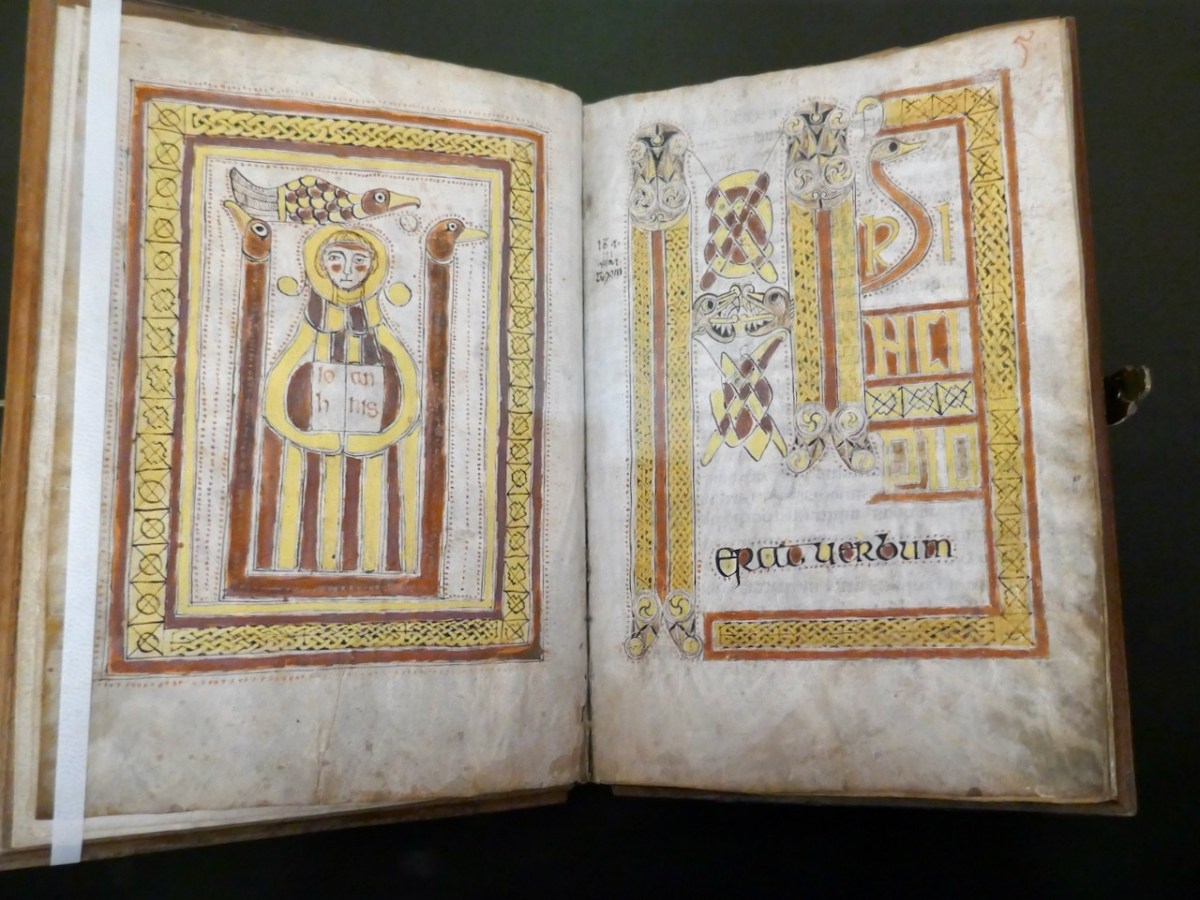 Io an
h nis
IN PRI
NCI
PIO
erat uerbum